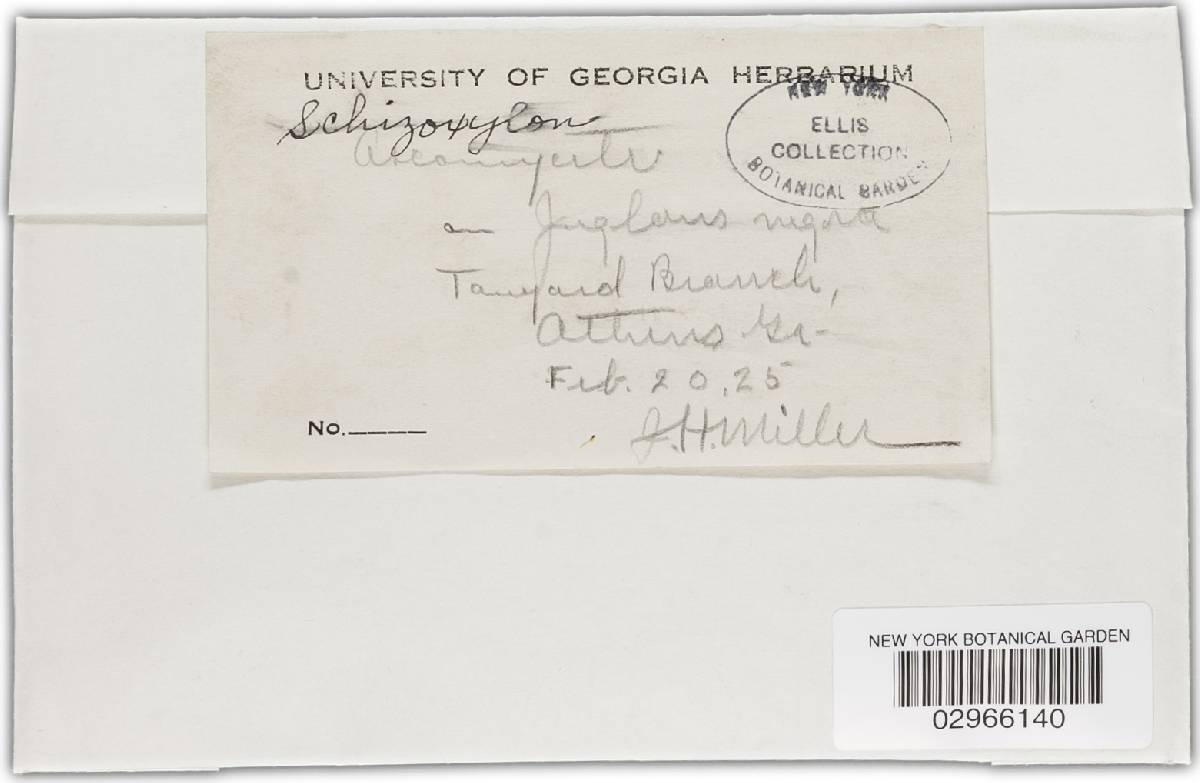 UNIVERSITY OF GEORGIA HERBARIUM
Schizoxylon
NEW YORK
ELLIS
COLLECTION
BOTANICAL GARDEN
Ascomycete
on Juglans nigra
Tanyard Branch,
Athens Ga-
Feb. 20, 25
No.____
J.H. Miller
NEW YORK BOTANICAL GARDEN
02966140